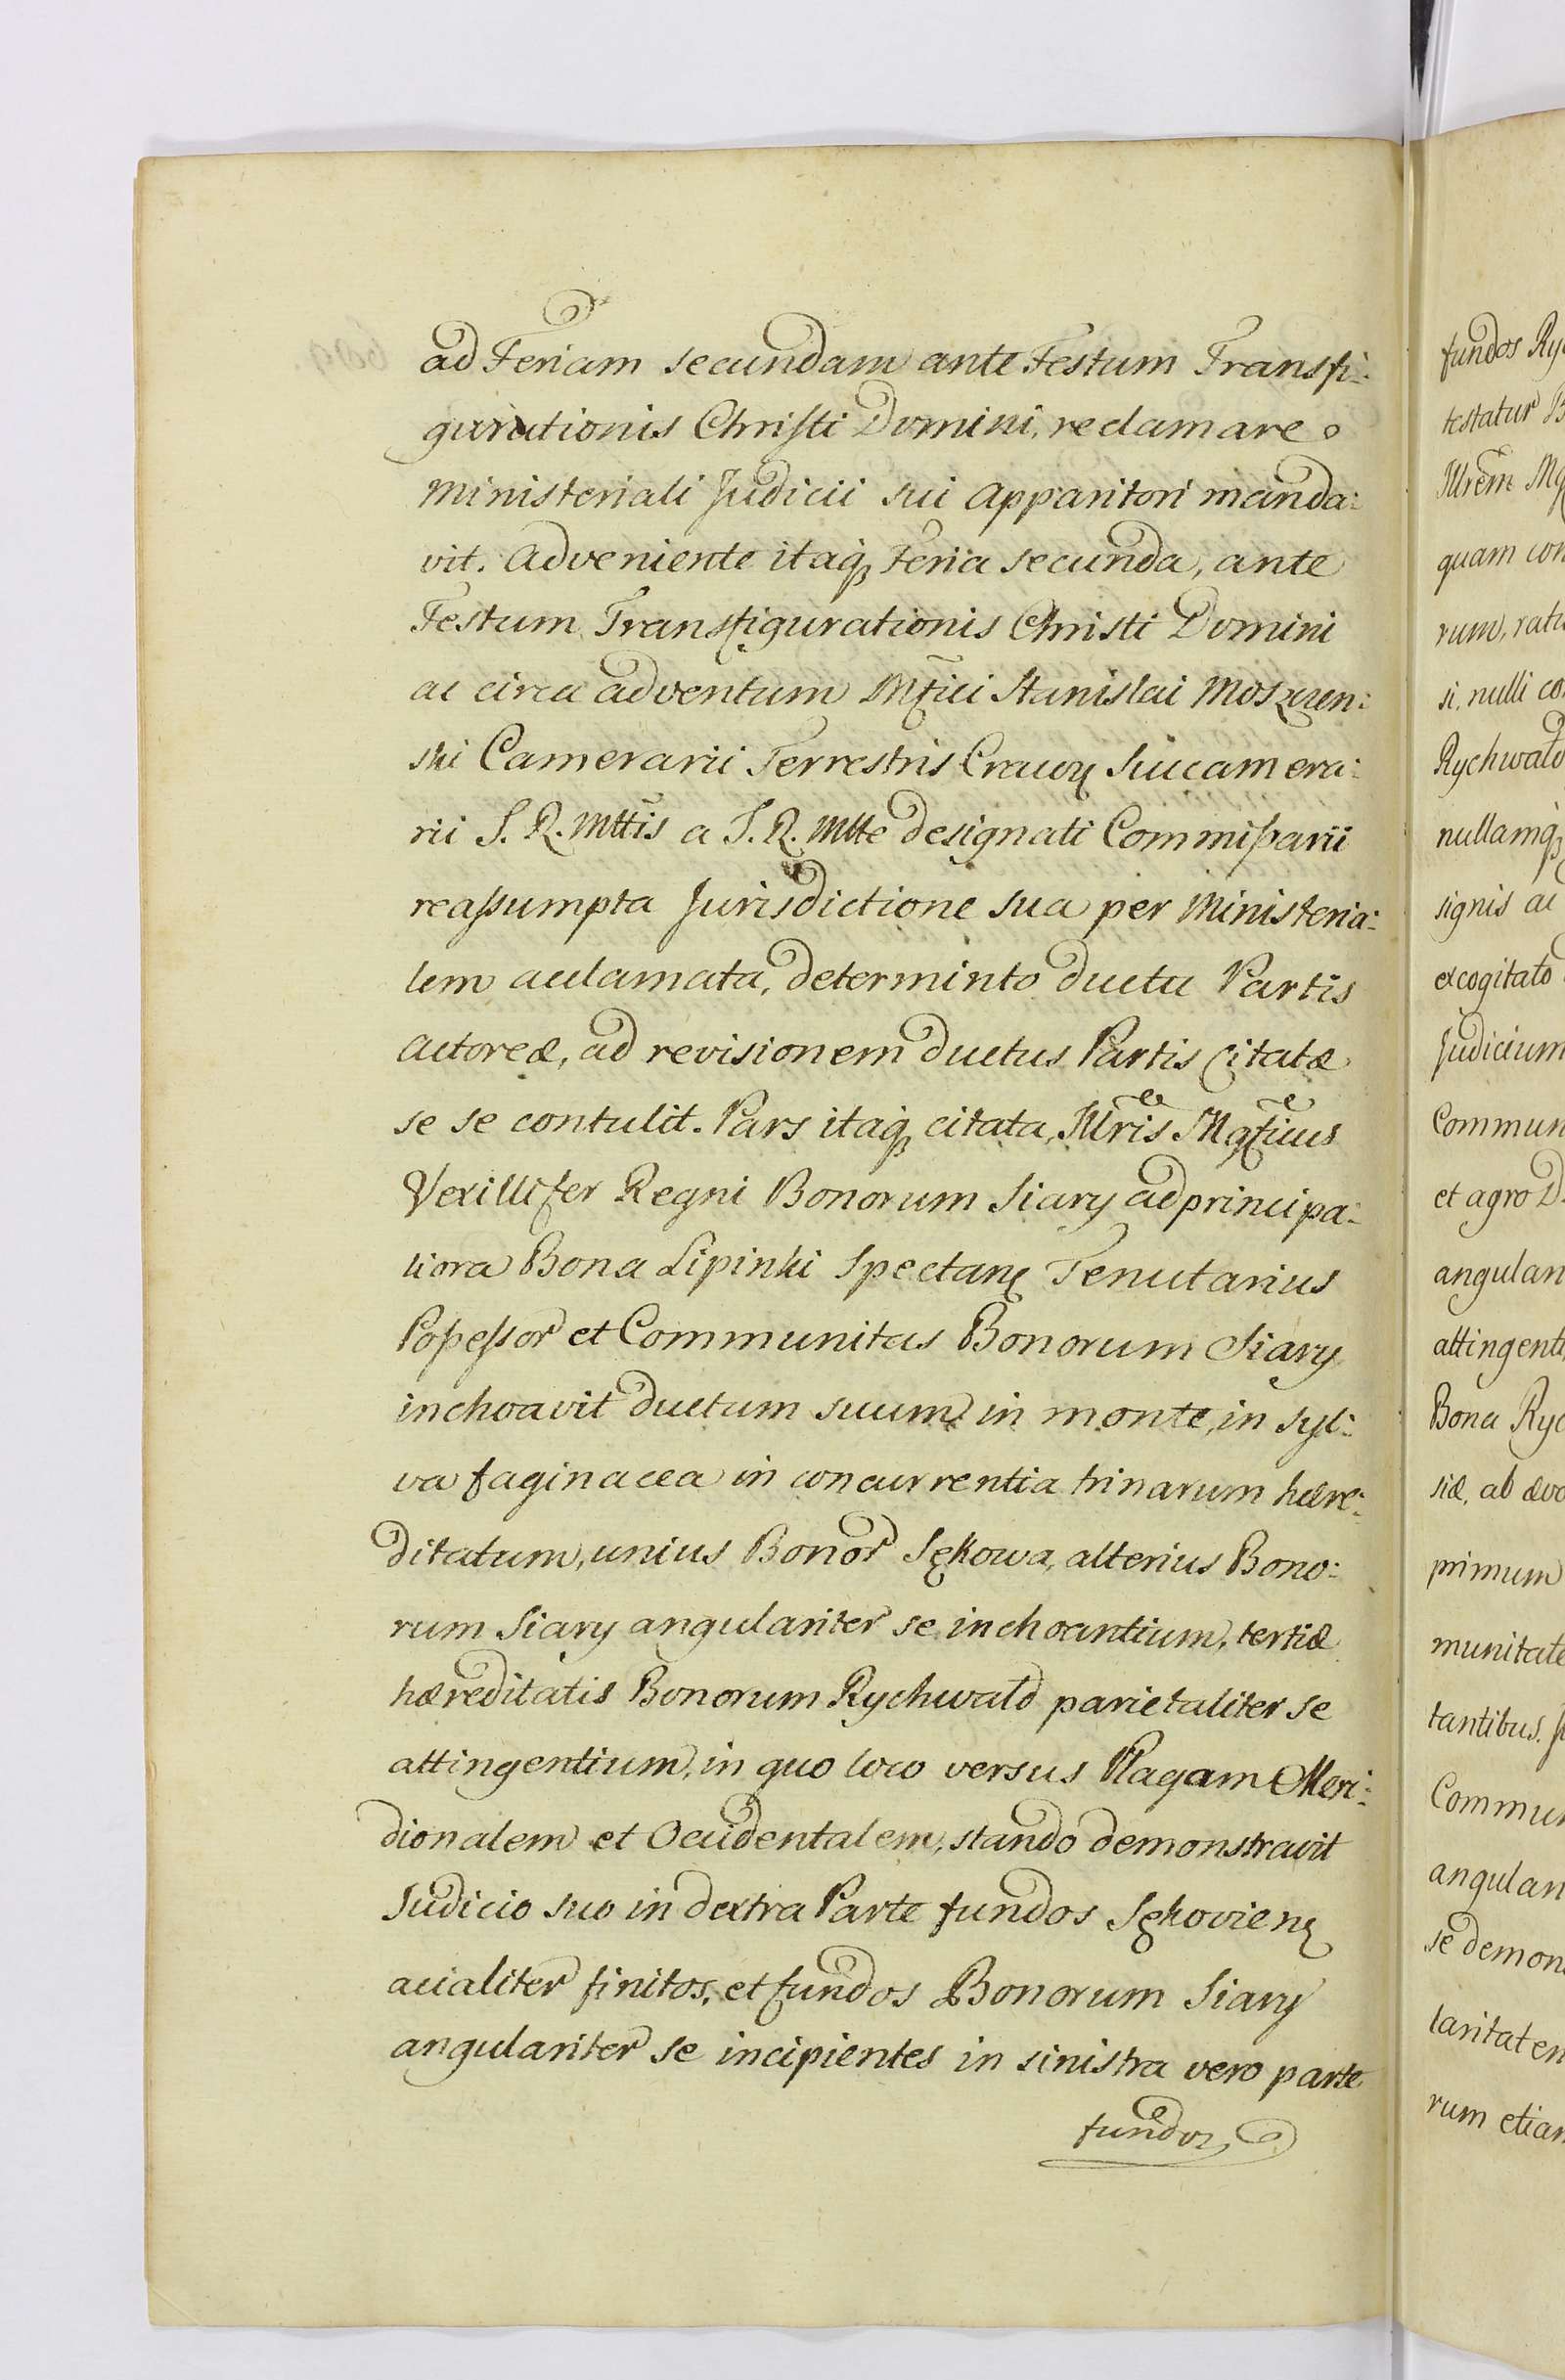 ad Feriam secundam ante Festum Transfi:
gurationis Christi Domini, reclamare
Ministeriali Judicii sui Apparitori manda:
vit. Adveniente itaq₃ Feria secunda, ante
Festum Transfigurationis Christi Domini
ac circa adventum Mfici Stanislai Moszczen:
ski Camerarii Terrestris Cracov Succamera:
rii S. R. Mttis a S. R. Mtte designati Commissarii
reassumpta Jurisdictione sua per Ministeria:
lem acclamata, determinto ductu Partis
Actoreæ, ad revisionem ductus Partis Citatæ
se se contulit. Pars itaq₃ citata, Illris Mgficus
Vexillifer Regni Bonorum Siary ad principa:
liora Bona Lipinki Spectan Tenutarius
Possessor et Communitas Bonorum Siary
inchoavit ductum suum in monte, in syl:
va faginacea in concurrentia trinarum hære:
ditatum, unius Bonor Sękowa, alterius Bono:
rum Siary angulariter se inchoantium, tertiæ
hæreditatis Bonorum Rychwałd parietaliter se
attingentium, in quo loco versus Plagam Meri:
dionalem et Occidentalem, stando demonstravit
Judicio suo in dextra Parte fundos Sękovien
acialiter finitos, et fundos Bonorum Siary
angulariter se incipientes in sinistra vero parte
fundos
fundos
testatur
Illrem
quam
rum,
si, nulli
Rychwałd
nullamq₃
signis ac
excogitato
Judicium
Commun
et agro
angular
attingenti
Bona Ryc
siæ, ab ævo
primum
munitate
tantibus.
Commun
angular
se demon
laritatem
rum etiam